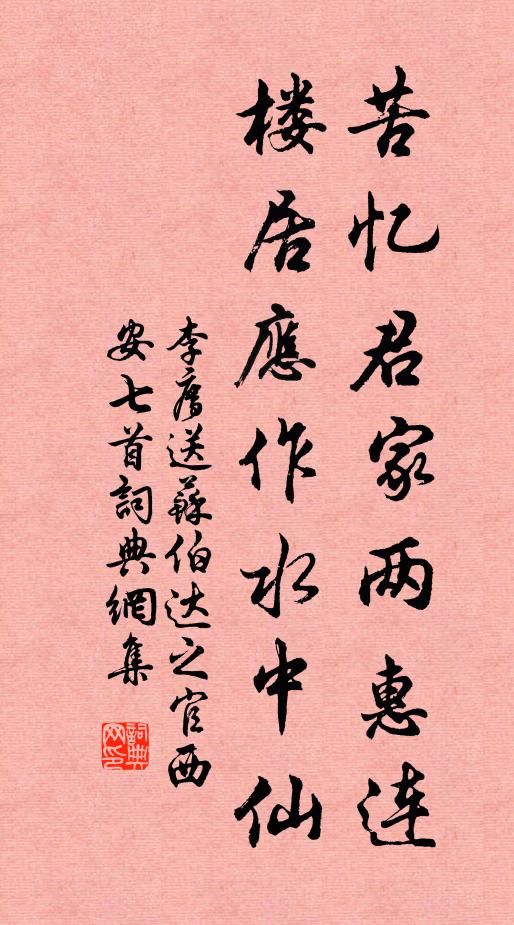 苦忆君家两惠连
楼居應作水中仙
李廌送蘇伯达之官西
安七首詞典網集
詞典网印